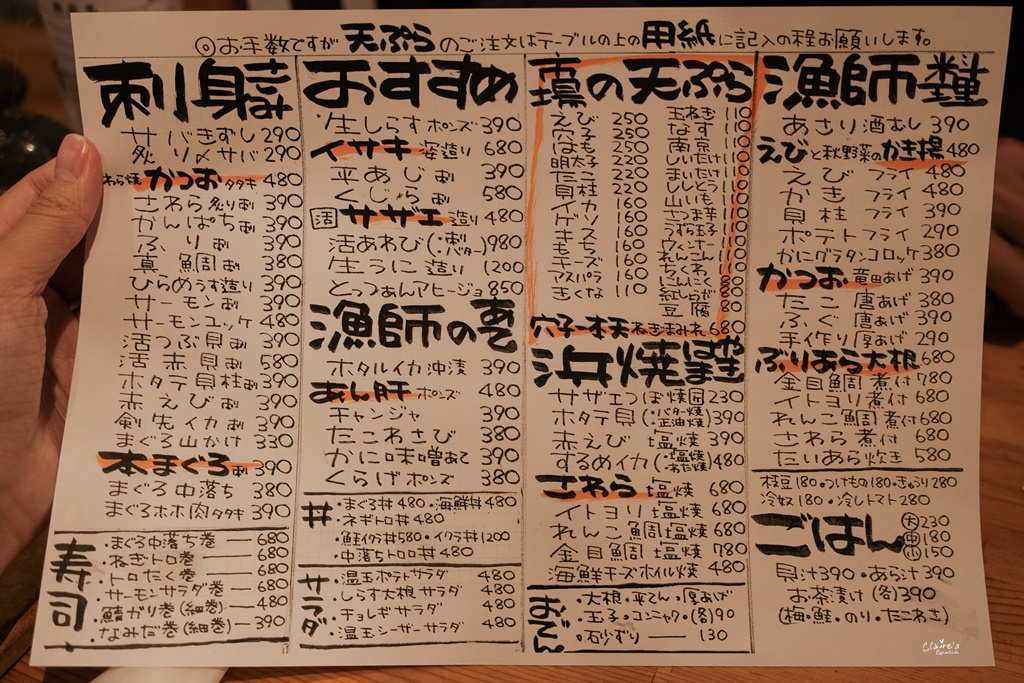 ◎お手数ですが 天ぷら のご注文はテーブルの上の 用紙 に記入の程お願いします。
刺身
サバきずし 290
炙り〆サバ 290
わら焼 かつお タタキ 480
さわら炙り刺 390
かんぱち刺 390
ぶり刺 390
真鯛刺 390
ひらめうす造り 390
サーモン刺 390
サーモンユッケ 480
活つぶ貝刺 390
活赤貝刺 580
ホタテ貝柱刺 390
赤えび刺 390
剣先イカ刺 390
まぐろ山かけ 330
本まぐろ刺 390
まぐろ中落ち 380
まぐろホホ肉タタキ 390
寿司
・まぐろ中落ち巻 ― 680
・ねぎトロ巻 ― 680
・トロたく巻 ― 680
・サーモンサラダ巻 ― 680
・鯖がり巻(細巻) ― 480
・なみだ巻(細巻) ― 390
おすすめ
生しらすポンズ 390
イサキ 姿造り 680
平あじ刺 390
くじら刺 580
活 サザエ 造り 480
活あわび(・刺・バター) 980
生うに造り 1200
とっつぁんアヒージョ 850
漁師のあて
ホタルイカ沖漬 390
あん肝 ポンズ 480
チャンジャ 390
たこわさび 380
かに味噌あて 390
くらげポンズ 380
丼
・まぐろ丼 480 ・海鮮丼 480
・ネギトロ丼 480
・鮭イクラ丼 580 ・イクラ丼 1200
・中落ちトロロ丼 480
サラダ
・温玉ポテトサラダ 480
・しらす大根サラダ 480
・チョレギサラダ 480
・温玉シーザーサラダ 480
の天ぷら
えび 250
穴子 250
はも 220
明太子 220
たこ 220
貝柱 220
イカ 160
ゲソ 160
キス 160
もち 160
チーズ 160
アスパラ 160
きくな 110
玉ねぎ 110
なす 110
南京 110
しいたけ 110
まいたけ 110
ししとう 110
山いも 110
さつま芋 110
うずら玉子 110
ウィンナー 110
れんこん 110
ちくわ 110
にんにく 80
紅しょうが 80
豆腐 80
穴子一本天 ねぎまみれ 680
浜焼
サザエつぼ焼 230
ホタテ貝(・バター焼・正油焼) 390
赤えび塩焼 390
するめイカ(・塩焼・わた焼) 480
さわら 塩焼 680
イトヨリ塩焼 680
れんこ鯛塩焼 680
金目鯛塩焼 780
海鮮チーズホイル焼 480
おでん
・大根・平てん・厚あげ
・玉子・コンニャク・(各)90
・石ずり ― 130
漁師
あさり酒むし 390
えびと秋野菜のかき揚 480
えびフライ 480
かきフライ 480
貝柱フライ 390
ポテトフライ 290
かにグラタンコロッケ 380
かつお 竜田あげ 390
たこ唐あげ 380
ふぐ唐あげ 390
手作り厚あげ 290
ぶりあら大根 680
金目鯛煮付 780
イトヨリ煮付 680
れんこ鯛煮付 680
さわら煮付 680
たいあら炊き 580
枝豆180・つけもの180・きゅうり280
冷奴180・冷しトマト280
ごはん
大 230
中 180
小 150
貝汁390・あら汁390
お茶漬け(各)390
(梅・鮭・のり・たこわさ)
Claire's